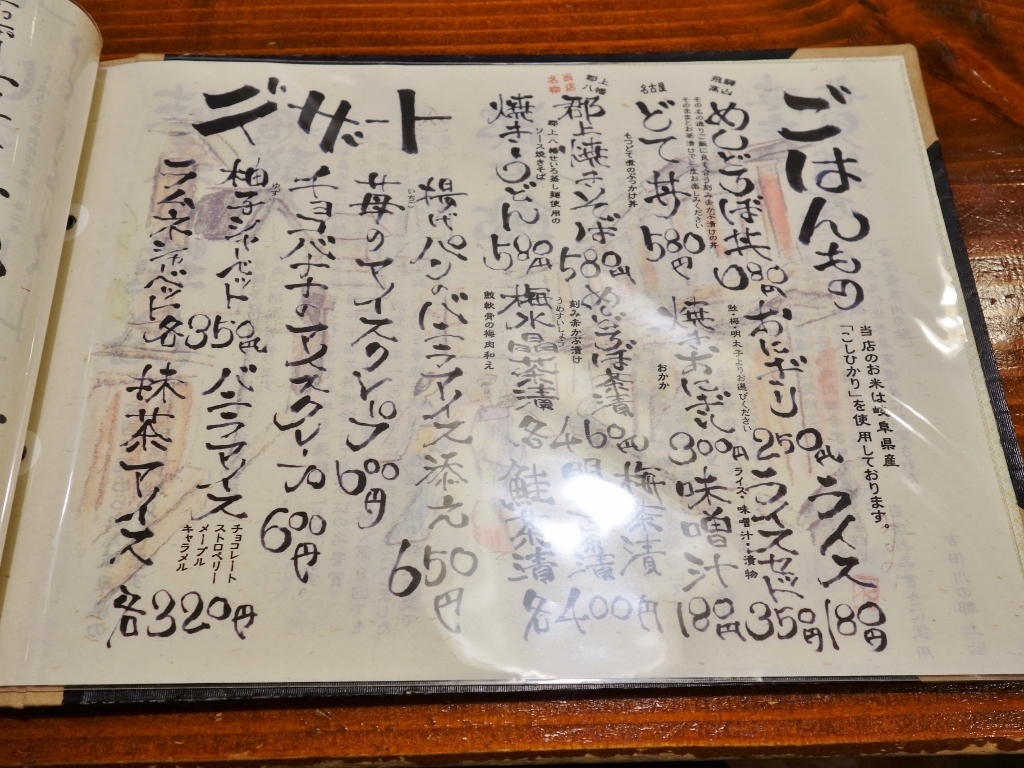 ごはんもの
当店のお米は岐阜県産
「こしひかり」を使用しております。
飛騨高山
めしどろぼ丼 680円
そのもの通りご飯に良く合う刻み赤かぶ漬けの丼
そのままとお茶漬けで二度お楽しみください
おにぎり 250円
鮭・梅・明太子よりお選びください
ライス 180円
ライスセット 350円
ライス・味噌汁・漬物
名古屋
どて丼 580円
もつどて煮のぶっかけ丼
焼おにぎり 300円
おかか
味噌汁 180円
当店名物
郡上八幡
郡上焼きそば 580円
郡上八幡せいろ蒸し麺使用の
ソース焼きそば
めしどろぼ茶漬
刻み赤かぶ漬け
焼きうどん 580円
梅水晶茶漬 各460円
うめすいしょう
鮫軟骨の梅肉和え
梅茶漬
鮭茶漬 各400円
デザート
揚げパンのバニラアイス添え 650円
苺のアイスクレープ 600円
いちご
チョコバナナのアイスクレープ 600円
柚子シャーベット
ゆず
ラムネシャーベット 各350円
バニラアイス
チョコレート
ストロベリー
メープル
キャラメル
抹茶アイス 各320円